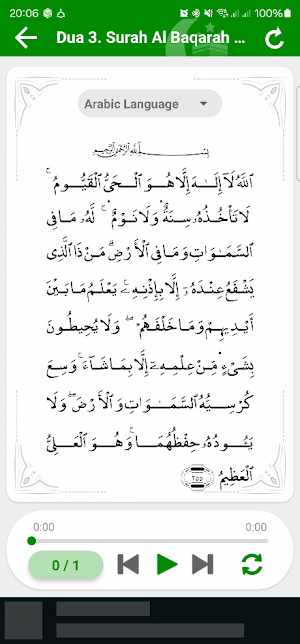 20:06 100%
Dua 3. Surah Al Baqarah ...
Arabic Language
بِسْمِ اللَّهِ الرَّحْمَٰنِ الرَّحِيمِ
اللَّهُ لَا إِلَٰهَ إِلَّا هُوَ الْحَيُّ الْقَيُّومُ ۚ
لَا تَأْخُذُهُ سِنَةٌ وَلَا نَوْمٌ ۚ لَهُ مَا فِي
السَّمَاوَاتِ وَمَا فِي الْأَرْضِ ۗ مَنْ ذَا الَّذِي
يَشْفَعُ عِنْدَهُ إِلَّا بِإِذْنِهِ ۚ يَعْلَمُ مَا بَيْنَ
أَيْدِيهِمْ وَمَا خَلْفَهُمْ ۖ وَلَا يُحِيطُونَ
بِشَيْءٍ مِنْ عِلْمِهِ إِلَّا بِمَا شَاءَ ۚ وَسِعَ
كُرْسِيُّهُ السَّمَاوَاتِ وَالْأَرْضَ ۖ وَلَا
يَئُودُهُ حِفْظُهُمَا ۚ وَهُوَ الْعَلِيُّ
الْعَظِيمُ ٢٥٥
0:00 0:00
0 / 1